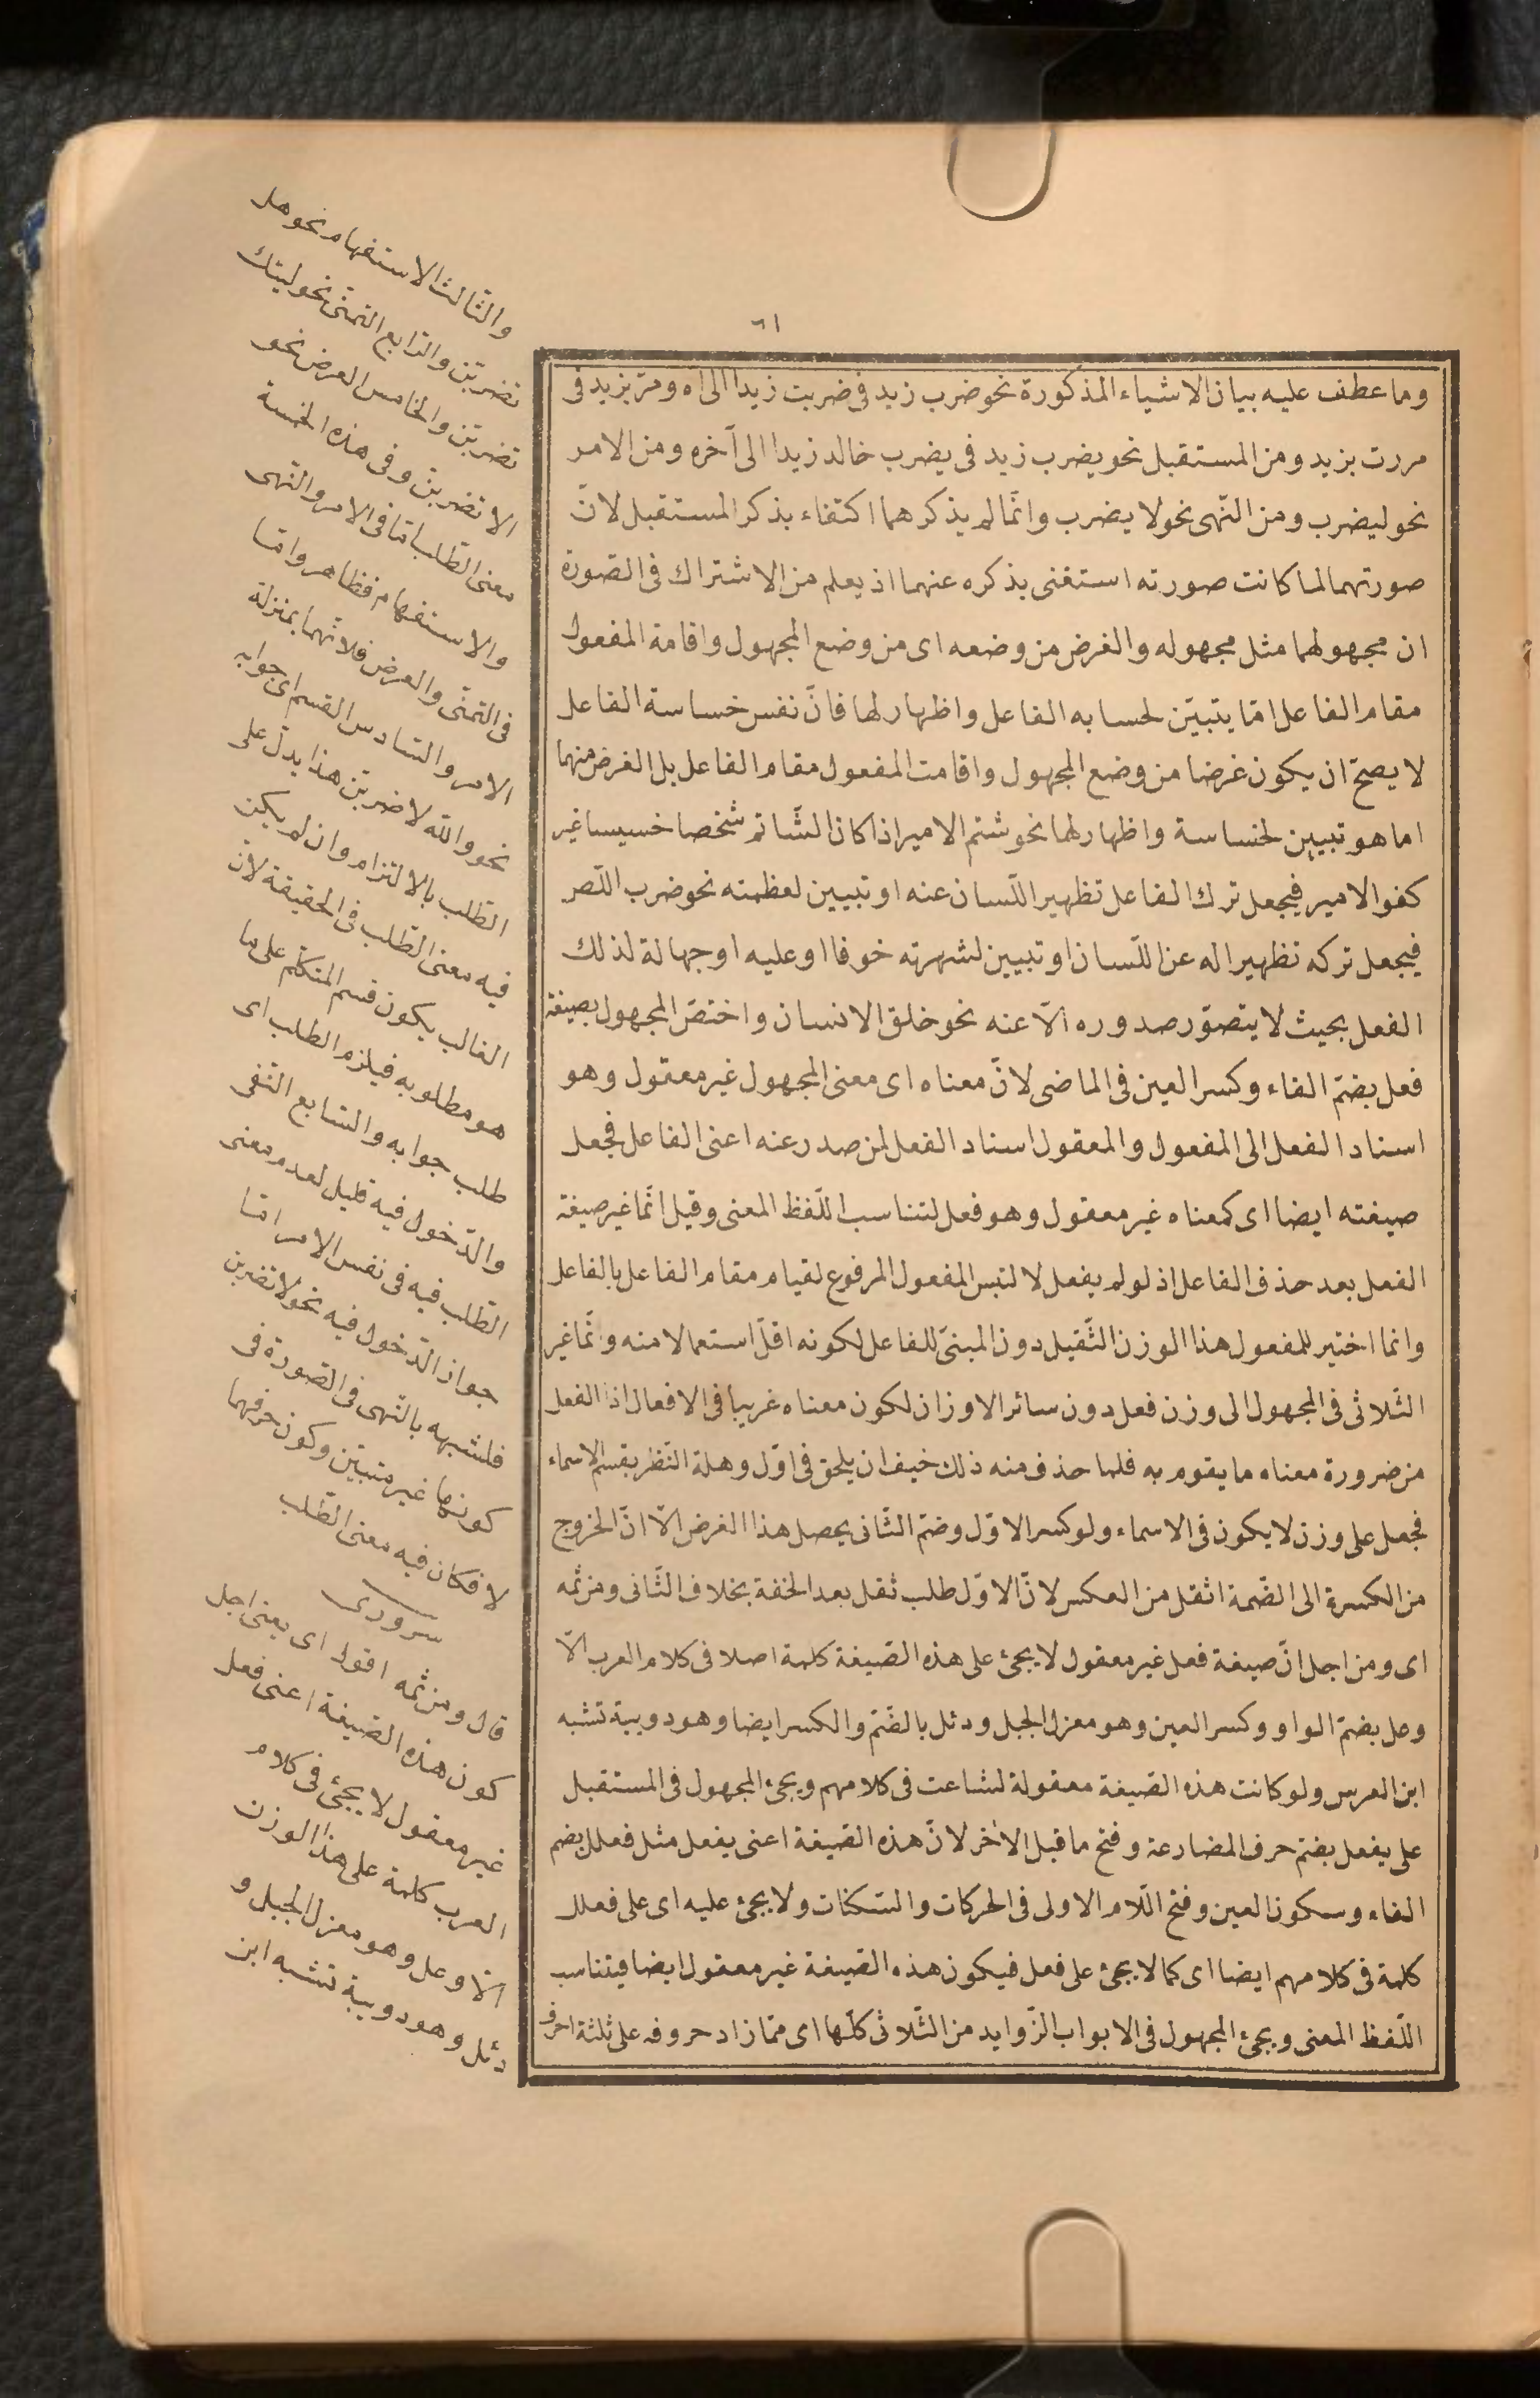 ٦١
وما عطف عليه بيان الاشياء المذكورة نحو ضرب زيد فى ضربت زيدا الى اه ومرّ بزيد فى
مررت بزيد ومن المستقبل نحو يضرب زيد فى يضرب خالد زيدا الى آخره ومن الامر
نحو ليضرب ومن النّهى نحو لا يضرب وانّما لم يذكرهما اكتفاء بذكر المستقبل لانّ
صورتهما لما كانت صورته استغنى بذكره عنهما اذ يعلم من الاشتراك فى الصّورة
ان مجهولهما مثل مجهوله والغرض من وضعه اى من وضع المجهول واقامة المفعول
مقام الفاعل امّا يتبيّن لخسابه الفاعل واظهار لها فانّ نفس خساسة الفاعل
لا يصحّ ان يكون غرضا من وضع المجهول واقامت المفعول مقام الفاعل بل الغرض منهما
اما هو تبيين لخساسة واظهار لها نحو شتم الامير اذا كان الشّاتم شخصا خسيسا غير
كفو الامير فيجعل ترك الفاعل تظهير اللّسان عنه او تبيين لعظمته نحو ضرب اللّص
فيجعل تركه تظهيرا له عن اللّسان او تبيين لشهرته خوفا او عليه او جهالة لذلك
الفعل بحيث لا يتصوّر صدوره الّا عنه نحو خلق الانسان واختصّ المجهول بصيغة
فعل بضمّ الفاء وكسر العين فى الماضى لانّ معناه اى معنى المجهول غير معقول وهو
اسناد الفعل الى المفعول والمعقول اسناد الفعل لمن صدر عنه اعنى الفاعل فجعل
صيغته ايضا اى كمعناه غير معقول وهو فعل لتناسب اللّفظ المعنى وقيل انّما غير صيغة
الفعل بعد حذف الفاعل اذ لو لم يفعل لالتبس المفعول المرفوع لقيام مقام الفاعل بالفاعل
وانما اختير للمفعول هذا الوزن الثّقيل دون المبنىّ للفاعل لكونه اقلّ استعمالا منه وانّما غير
الثّلاثى فى المجهول الى وزن فعل دون سائر الاوزان لكون معناه غريبا فى الافعال اذ الفعل
من ضرورة معناه ما يقوم به فلما حذف منه ذلك خيف ان يلحق فى اوّل وهلة النّظر بقسم الاسماء
فجعل على وزن لا يكون فى الاسماء ولو كسر الاوّل وضمّ الثّانى يحصل هذا الغرض الّا انّ الخروج
من الكسرة الى الضّمة اثقل من العكس لانّ الاوّل طلب ثقل بعد الخفة بخلاف الثّانى ومن ثمه
اى ومن اجل انّ صيغة فعل غير معقول لا يجئ على هذه الصّيغة كلمة اصلا فى كلام العرب الّا
وعل بضمّ الواو وكسر العين وهو معز الجبل ودئل بالضّمّ والكسر ايضا وهو دويبة تشبه
ابن العرس ولو كانت هذه الصّيغة معقولة لشاعت فى كلامهم ويجئ المجهول فى المستقبل
على يفعل بضمّ حرف المضارعة وفتح ما قبل الاخر لانّ هذه الصّيغة اعنى يفعل مثل فعلل بضم
الفاء وسكون العين وفتح اللّام الاولى فى الحركات والسّكنات ولا يجئ عليه اى على فعلل
كلمة فى كلامهم ايضا اى كما لا يجئ على فعل فيكون هذه الصّيغة غير معقول ايضا فيتناسب
اللّفظ المعنى ويجئ المجهول فى الابواب الزّوايد من الثّلاثى كلّها اى ممّا زاد حروفه على ثلثة احرف
والثّالث الاستفهام نحو هل
تضربنّ والرّابع التمنّى نحو ليتك
تضربنّ والخامس العرض نحو
الا تضربنّ وفى هذه الخمسة
معنى الطّلب امّا فى الامر والنّهى
والاستفهام فظاهر وامّا
فى التمنّى والعرض فلانّهما بمنزلة
الامر والسّادس القسم اى جوابه
نحو واللّه لاضربنّ هذا يدلّ على
الطّلب بالالتزام وان لم يكن
فيه معنى الطّلب فى الحقيقة لانّ
الغالب يكون قسم المتكلّم على ما
هو مطلوبه فيلزم الطلب اى
طلب جوابه والسّابع النّفى
والدّخول فيه قليل لعدم معنى
الطّلب فيه فى نفس الامر امّا
جواز الدّخول فيه نحو لا تضربن
فلشبهه بالنّهى فى الصّورة فى
كونها غير متبيّن وكون حرفهما
لا فكان فيه معنى الطّلب
سرورى
قال ومن ثمه اقول اى يعنى اجل
كون هذه الصّيغة اعنى فعل
غير معقول لا يجئ فى كلام
العرب كلمة على هذا الوزن
الّا وعل وهو معز الجبل و
دئل وهو دويبة تشبه ابن